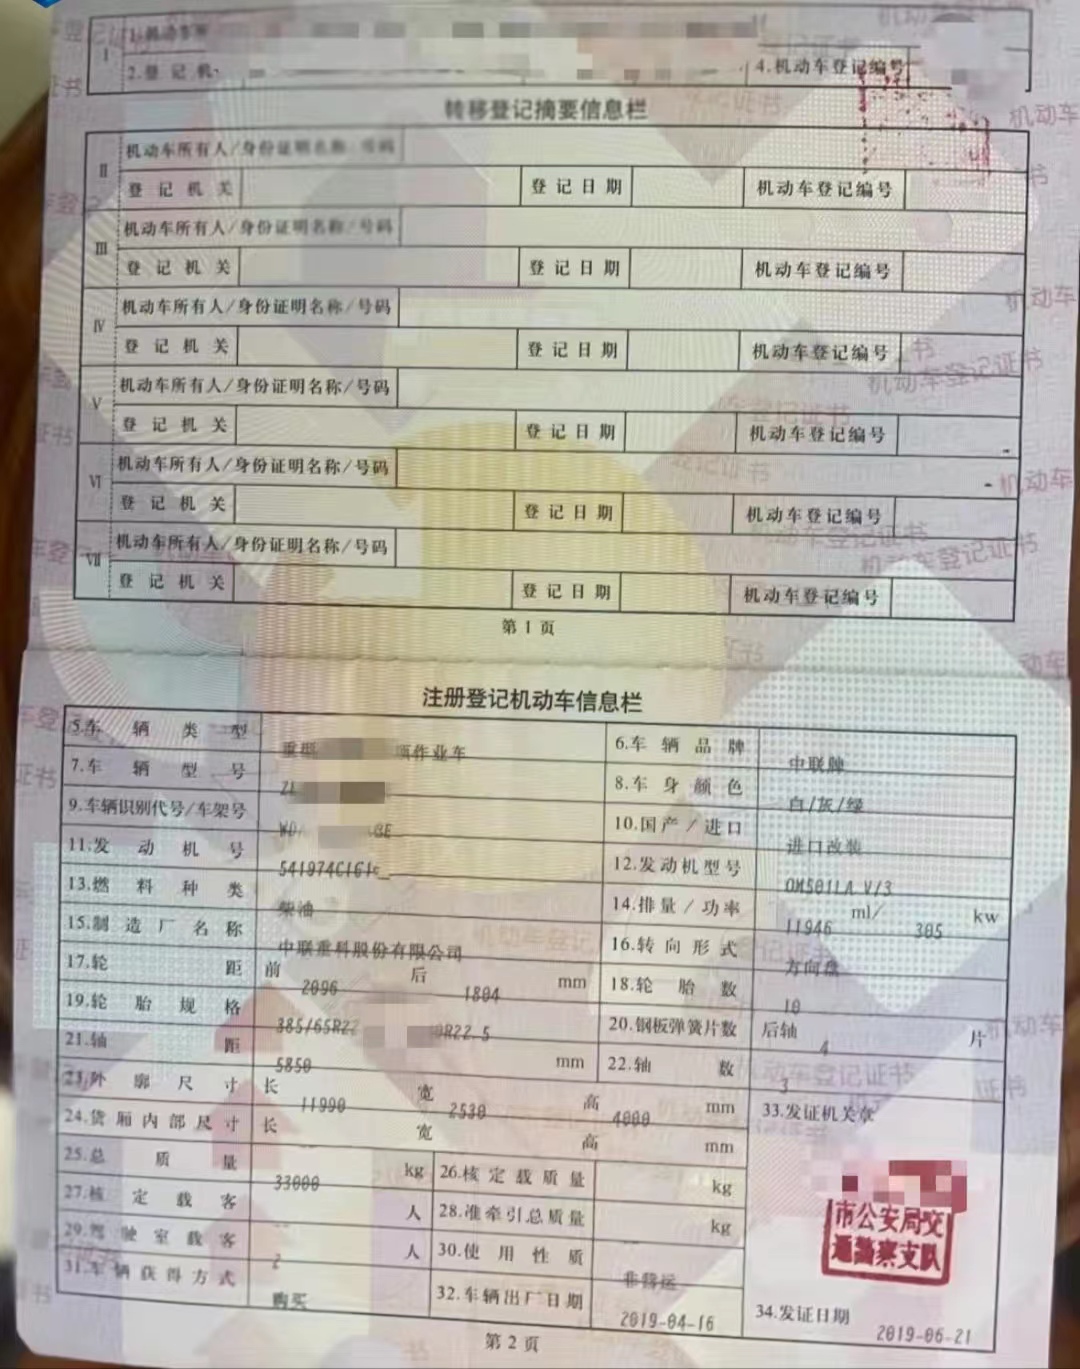 I
1.机动车所
2.登记机
4.机动车登记编号
转移登记摘要信息栏
II 机动车所有人/身份证明名称/号码
登记机关 登记日期 机动车登记编号
III 机动车所有人/身份证明名称/号码
登记机关 登记日期 机动车登记编号
IV 机动车所有人/身份证明名称/号码
登记机关 登记日期 机动车登记编号
V 机动车所有人/身份证明名称/号码
登记机关 登记日期 机动车登记编号
VI 机动车所有人/身份证明名称/号码
登记机关 登记日期 机动车登记编号
VII 机动车所有人/身份证明名称/号码
登记机关 登记日期 机动车登记编号
第1页
注册登记机动车信息栏
5.车辆类型 重型 作业车 6.车辆品牌 中联牌
7.车辆型号 ZL 8.车身颜色 白/灰/绿
9.车辆识别代号/车架号 WD 10.国产/进口 进口改装
11.发动机号 541974C161 12.发动机型号 OM501LA.V/3
13.燃料种类 柴油 14.排量/功率 11946 ml/ 305 kw
15.制造厂名称 中联重科股份有限公司 16.转向形式 方向盘
17.轮距 前 2096 后 1804 mm 18.轮胎数 10
19.轮胎规格 385/65R22 R22.5 20.钢板弹簧片数 后轴 4 片
21.轴距 5850 mm 22.轴数 3
23.外廓尺寸 长 11990 宽 2530 高 4000 mm 33.发证机关章
24.货厢内部尺寸 长 宽 高 mm
25.总质量 33000 kg 26.核定载质量 kg
27.核定载客 人 28.准牵引总质量 kg
市公安局交
通警察支队
29.驾驶室载客 2 人 30.使用性质 非营运
31.车辆获得方式 购买 32.车辆出厂日期 2019-04-16 34.发证日期 2019-06-21
第2页